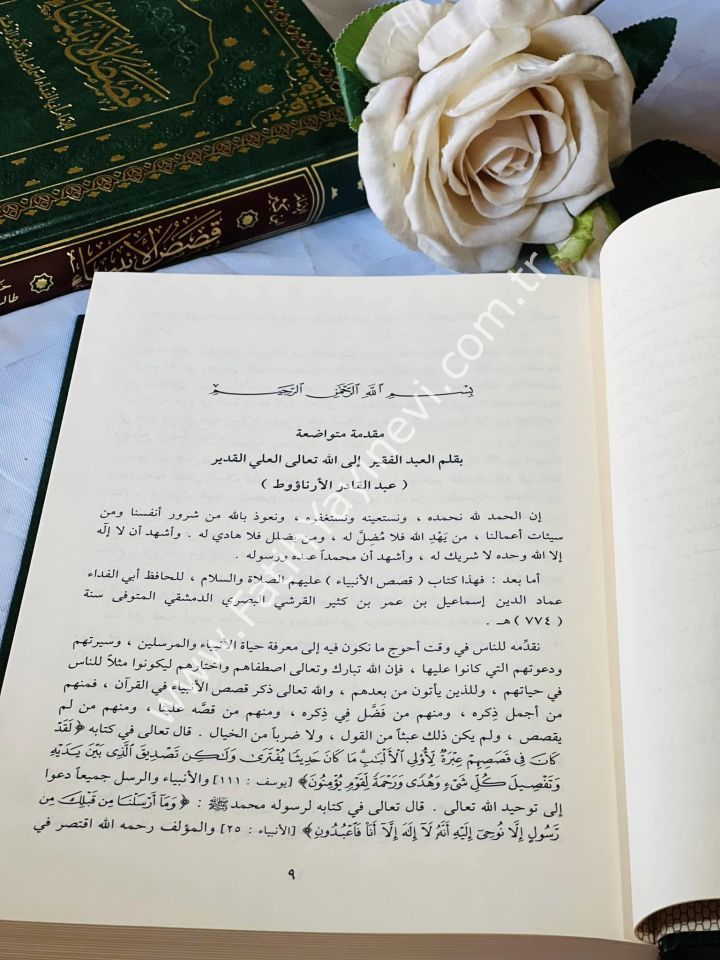 قصص الأنبياء
قصص الأنبياء
بسم الله الرحمن الرحيم
مقدمة متواضعة
بقلم العبد الفقير إلى الله تعالى العلي القدير
( عبد القادر الأرناؤوط )
إن الحمد لله نحمده ، ونستعينه ونستغفره ، ونعوذ بالله من شرور أنفسنا ومن
سيئات أعمالنا ، من يَهْدِ الله فلا مُضِلَّ له ، ومن يضلل فلا هادي له . وأشهد أن لا إلٰه
إلا الله وحده لا شريك له ، وأشهد أن محمداً عبده ورسوله .
أما بعد : فهذا كتاب ( قصص الأنبياء ) عليهم الصلاة والسلام ، للحافظ أبي الفداء
عماد الدين إسماعيل بن عمر بن كثير القرشي البصري الدمشقي المتوفى سنة
( ٧٧٤ ) هـ .
نقدِّمه للناس في وقت أحوج ما نكون فيه إلى معرفة حياة الأنبياء والمرسلين ، وسيرتهم
ودعوتهم التي كانوا عليها ، فإن الله تبارك وتعالى اصطفاهم واختارهم ليكونوا مثلاً للناس
في حياتهم ، وللذين يأتون من بعدهم ، والله تعالى ذكر قصص الأنبياء في القرآن ، فمنهم
من أجمل ذِكره ، ومنهم من فَصَّل في ذِكره ، ومنهم من قصَّه علينا ، ومنهم من لم
يقصص ، ولم يكن ذلك عبثاً من القول ، ولا ضرباً من الخيال . قال تعالى في كتابه ﴿ لَقَدْ
كَانَ فِي قَصَصِهِمْ عِبْرَةٌ لِّأُوْلِي ٱلْأَلْبَٰبِ ۗ مَا كَانَ حَدِيثًا يُفْتَرَىٰ وَلَٰكِن تَصْدِيقَ ٱلَّذِي بَيْنَ يَدَيْهِ
وَتَفْصِيلَ كُلِّ شَيْءٍ وَهُدًى وَرَحْمَةً لِّقَوْمٍ يُؤْمِنُونَ﴾ [يوسف : ١١١] والأنبياء والرسل جميعاً دعوا
إلى توحيد الله تعالى . قال تعالى في كتابه لرسوله محمد ﷺ : ﴿ وَمَآ أَرْسَلْنَا مِن قَبْلِكَ مِن
رَّسُولٍ إِلَّا نُوحِيٓ إِلَيْهِ أَنَّهُۥ لَآ إِلَٰهَ إِلَّآ أَنَا۠ فَٱعْبُدُونِ﴾ [الأنبياء : ٢٥] والمؤلف رحمه الله اقتصر في
٩
www.FatihYayinevi.com.tr